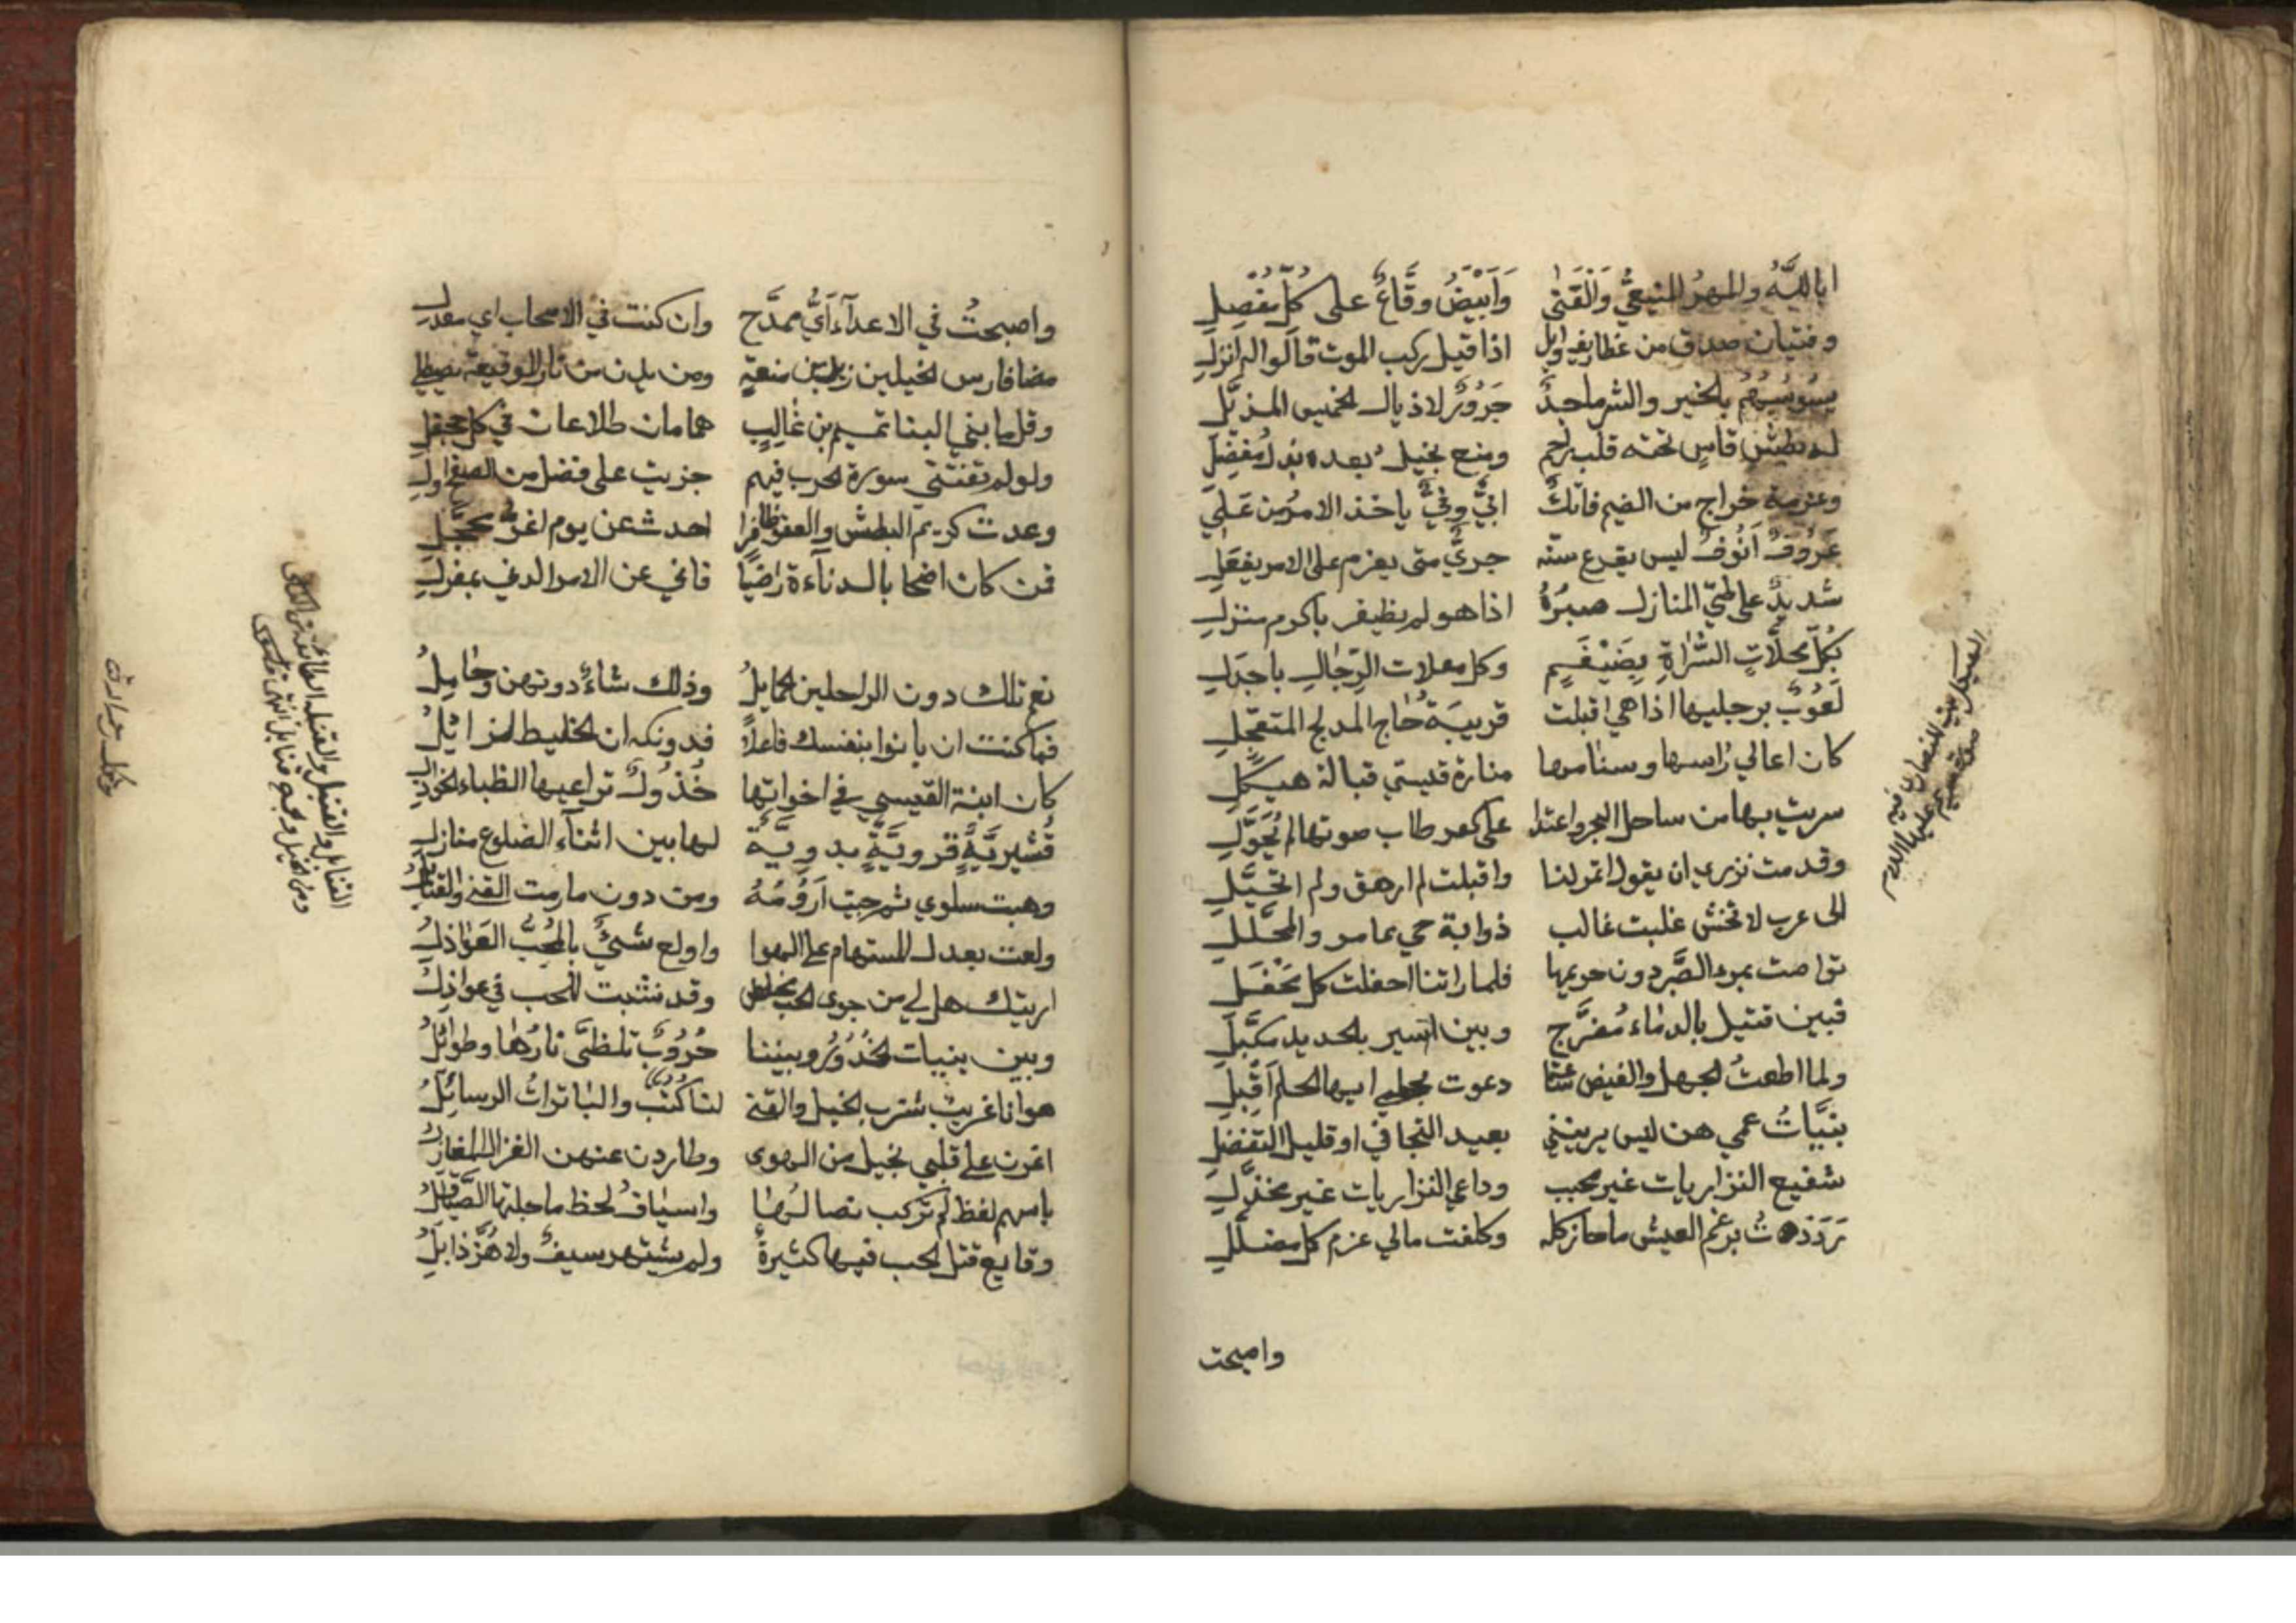 ابا لله والمهر المنيعي والقنى وَاَبْيَضُ وقَّاعٌ على كُلِّ مُفْصِلِ
وفتيان صدق من غطاريف وايل اذا قيل ركب الموت قالوا له انزل
يسوسهم بالخير والشر ماجدٌ جَرُورٌ لاذيال الخميس المذيَّل
له بطش قاسٍ تحته قلب راحم ومنع بخيل بعده بذل مُفضِل
وعزمة خراج من الضيم فاتك ابيٌّ وفيٌّ ياخذ الامر من عَلِ
عَزُوفٌ اَنُوفٌ ليس يقرع سنّه جريٌّ متى يعزم على الامر يفعل
شديدٌ على طيّ المنازل صبرُهُ اذا هو لم يظفر باكرم منزل
بكلّ محلّات السُّراةِ بِضَيْغَمٍ وكل معلات الرِّجال باجدل
لَعُوبٌ برجليها اذا هي اقبلت قريبة حاج المدلج المتعجّل
كان اعالي راسها وسنامها منارة قسيس قبالة هيكل
سريت بها من ساحل البحر واعتدا على كعر طاب صوتها لم يُحَوَّل
وقدمت نزيري ان يقول اتمولنا واقبلت لم ارهق ولم اتخيَّل
الى عرب لا تختشي غلبت غالب ذوابة حي عامر والمحلَّل
تواصت بمر الصَّبر دون حريمها فلما راتنا اجفلت كل مَجْفَل
فبين قتيل بالدماء مُضرَّج وبين اسير بالحديد مكبَّل
ولما اطعتُ الجهل والغيض ساعتا دعوت بحلمي ايها الحلم اَقْبِل
بنيَّاتُ عمي هن ليس يرينني بعيد التجافي او قليل التفضل
شفيع النزاريات غير مخيب وداعي النزاريات غير مخذَّل
رَدَدتُ برغم العيش ما حاز كله وكلفت مالي غرم كل مضلّل
واصبحت
واصبحتُ في الاعدآءِ اَيَّ ممدَّح وان كنت في الاصحاب اي معذل
مضا فارس الخيلين زيد بن منعة ومن يدن من نار الوقيعة يصطلي
وقل ما بني البنا تميم بن غالب همامان طلاعان في كل جحفل
ولو لم تفتني سورة الحرب فيهم جزيت على فضل من الصفح اول
وعدت كريم البطش والعفو ظافرا احدث عن يوم اغرّ محجّل
فمن كان اضحا بالدناءة راضيًا فاني عن الامر الدني بمعزل
نعم تلك دون الراحلين الخمايلُ وذلك شاءٌ دونهن وجامِلُ
فما كنت ان بانوا بنفسك فاعلاً فدونكه ان الخليط لمزائلُ
كان ابنة القيسي في اخواتها خُذُولٌ تراعيها الظباء الخواذل
قُشيريَّةٍ قرويَّةٍ بدويَّة لها بين اثناء الضلوع منازل
وهبت سلوي ثم جيت اَرُومُهُ ومن دون ما رمت القنى والقنابل
ولعت بعدل المستهام على الهوا واولع شيءٌ بالمُحبِّ العَوَاذلُ
اريتك هل لي من جوى الحب مخلص وقد نشبت للحب في حبائل
وبين بنيات الخُدُورُ وبيننا حُرُوبٌ تلظَّى نارُها وطوائلُ
هوانا غريب شرب الخيل والقنى لنا كُتُبٌ والباتراتُ الرسائلُ
اغرن على قلبي بخيل من الهوى وطارد عنهن الغزال المغازل
باسهم لفظ لم تركب نصالُها واسيافُ لحظ ما جلتها الصَّياقلُ
وقايع قتل الحب فيها كثيرةٌ ولم يشتهر سيفٌ ولا هُزَّ ذابلُ